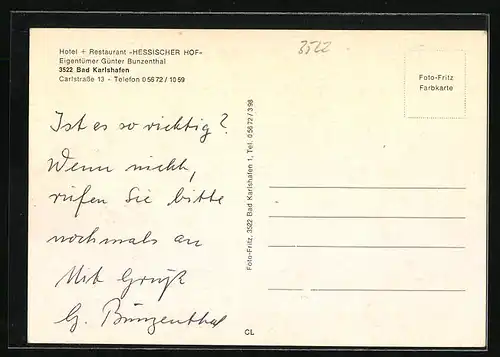 Hotel + Restaurant »HESSISCHER HOF«
Eigentümer Günter Bunzenthal
3522 Bad Karlshafen
Carlstraße 13 - Telefon 0 56 72 / 10 59
3522
Foto-Fritz
Farbkarte
Ist es so richtig?
Wenn nicht,
rufen Sie bitte
nochmals an
Mit Gruß
G. Bunzenthal
Foto-Fritz, 3522 Bad Karlshafen 1, Tel. 0 56 72 / 3 98
CL